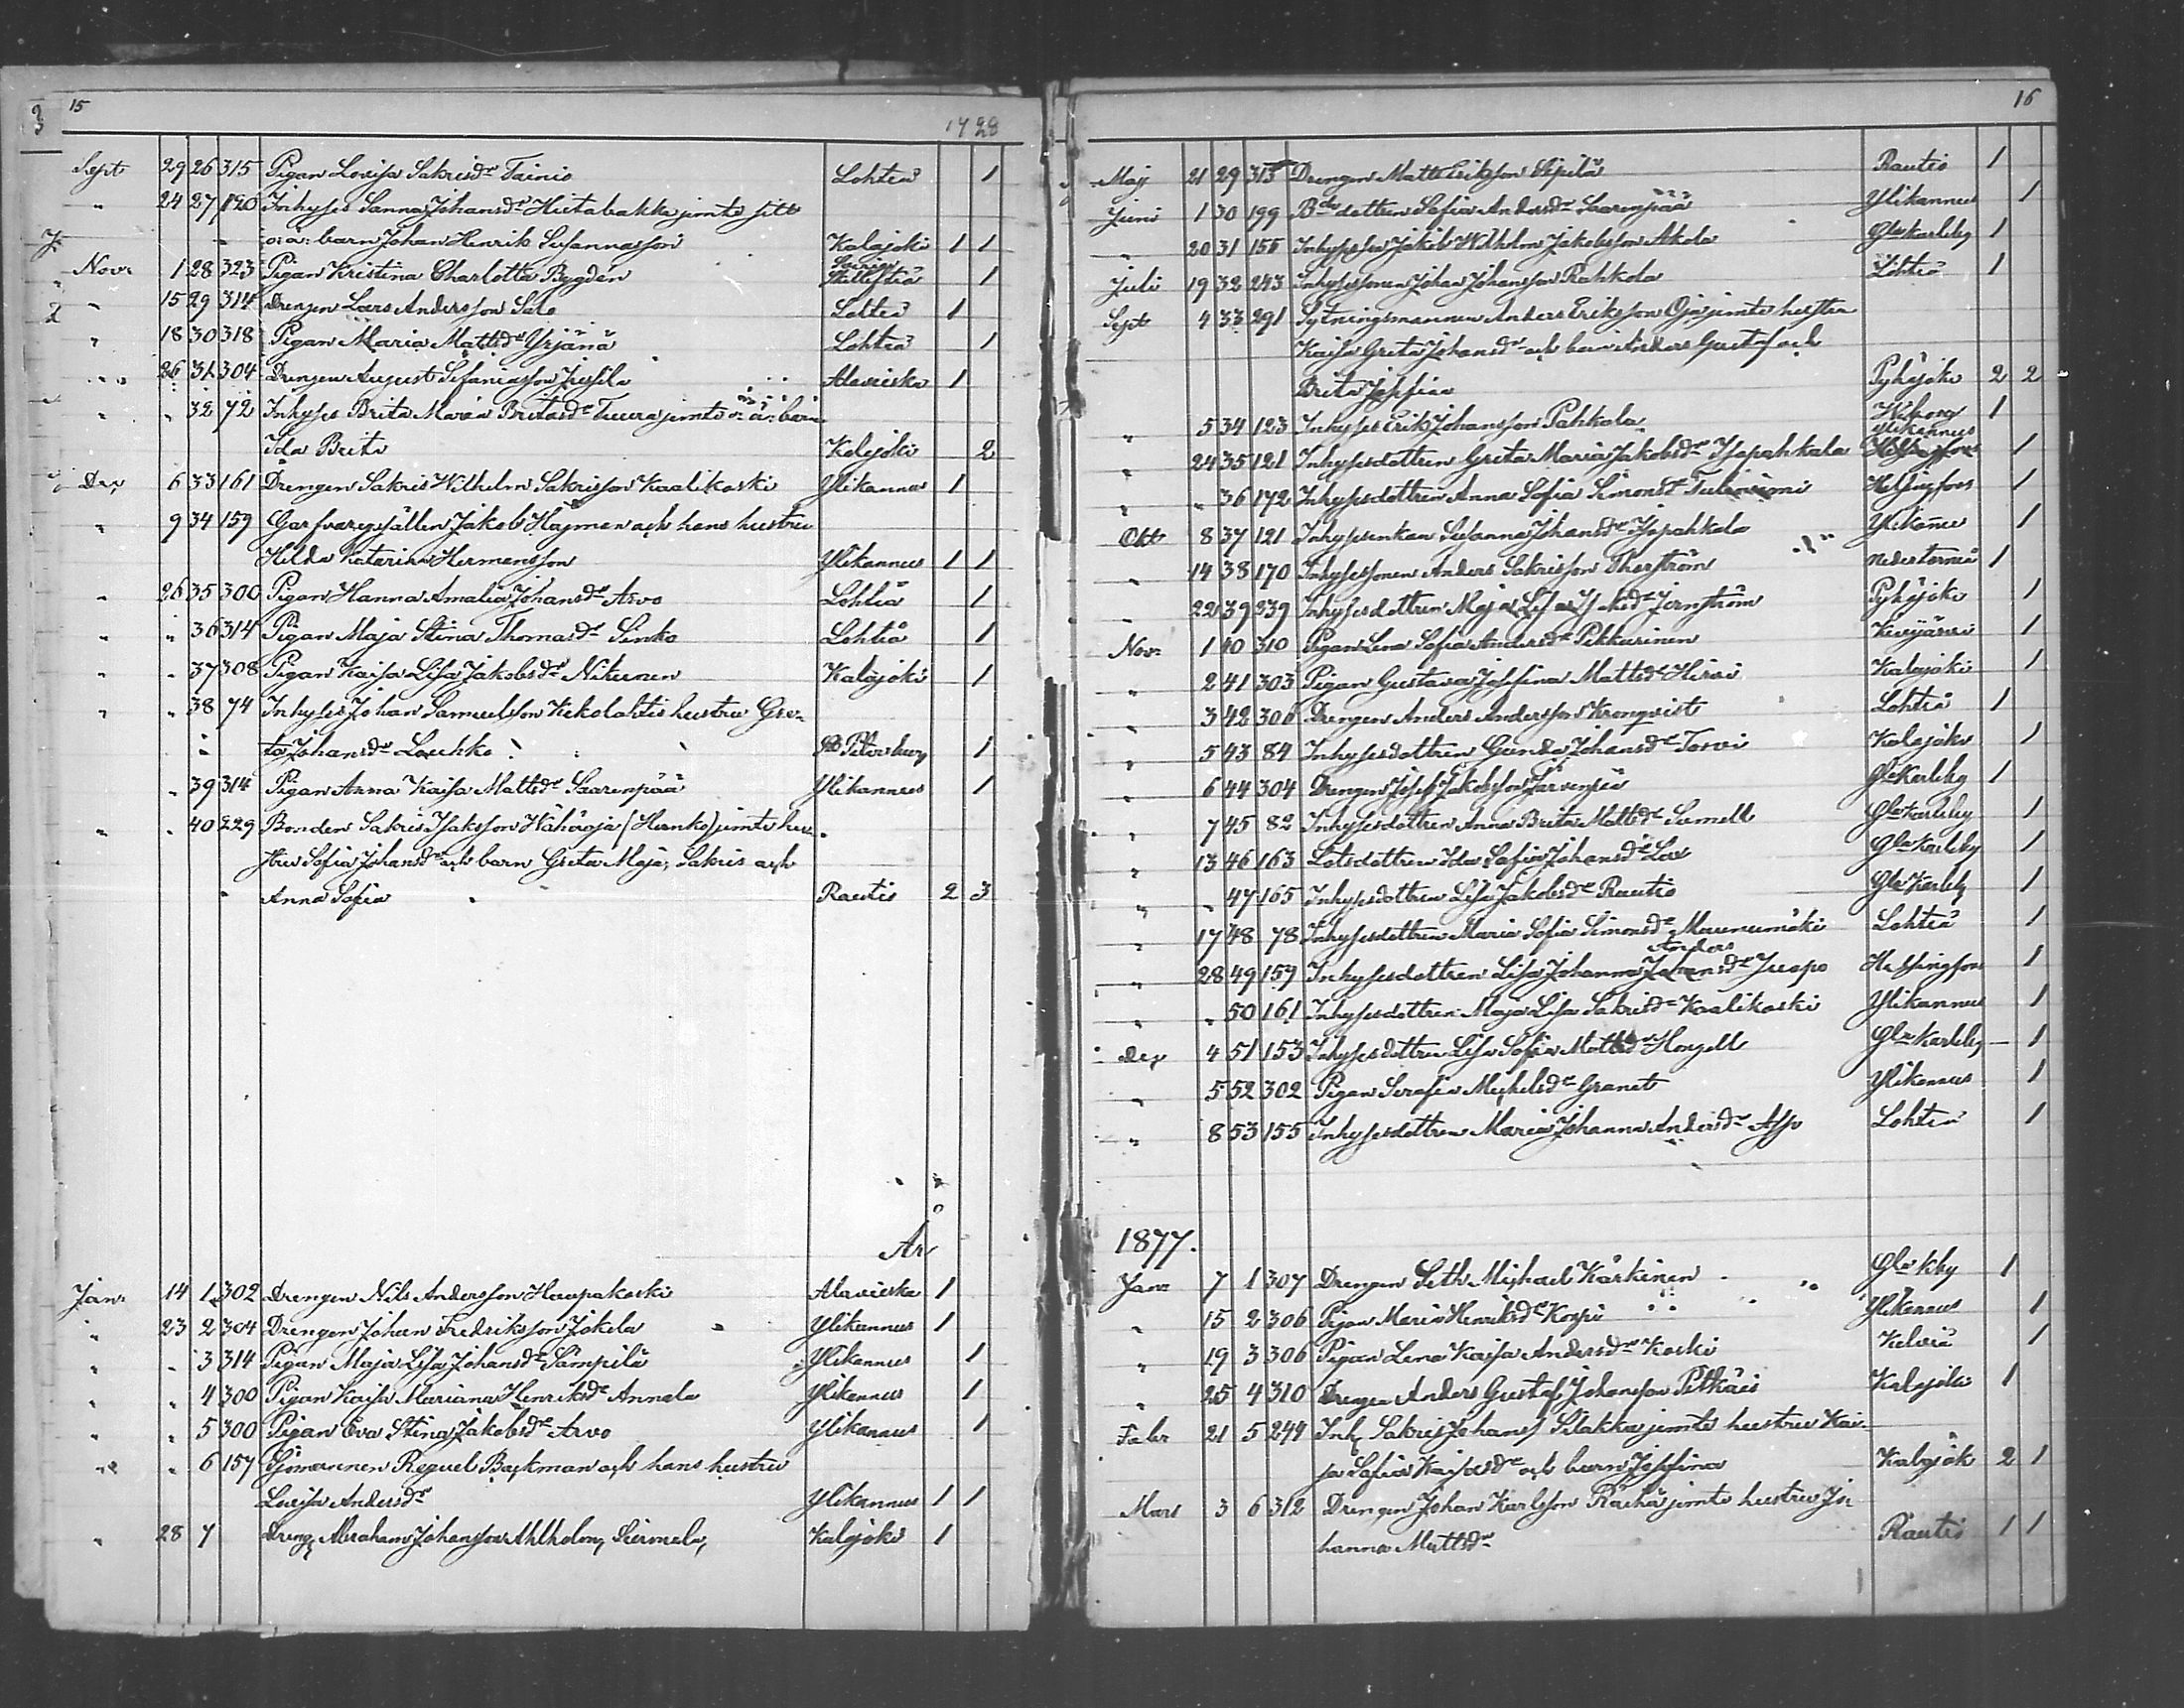 15
17 28
Sept 29 26 315 Pigan Lovisa Sakrisdr Tainio Lohteå 1
" 24 27 120 Inhyses Sanna Johansdr Hietabakka jemte sitt
o: ä: barn Johan Henrik Susannasson Kalajoki 1 1
Novr 1 28 323 Pigan Kristina Charlotta Bygdén Skellefteå 1
" 15 29 314 Drengen Lars Andersson Salo Lohteå 1
" 18 30 318 Pigan Maria Mattsdr Yrjänä Lohteå 1
" 26 31 304 Drengen August Sefaniasson Jussila Alavieska 1
" " 32 72 Inhyses Brita Maria Britasdr Tuura jemte o: ä: barn
Ida Brita Kalajoki 2
Dec 6 33 161 Drengen Sakris Wilhelm Sakrisson Kaalikoski Ylikannus 1
" 9 34 159 Garfvaregesällen Jakob Hägman och hans hustru
Hilda Katarina Hermansson Ylikannus 1 1
" 26 35 300 Pigan Hanna Amalia Johansdr Arvo Lohteå 1
" " 36 314 Pigan Maja Stina Thomasdr Sinko Lohteå 1
" " 37 308 Pigan Kaisa Lisa Jakobsdr Nikunen Kalajoki 1
" " 38 74 Inhyses Johan Samuelsson Kekolahtis hustru Gre-
ta Johansdr Louhko St Petersburg 1
" 39 314 Pigan Anna Kaisa Mattsdr Saarenpää Ylikannus 1
" " 40 229 Bonden Sakris Isaksson Wähäoja (Hernko) jemte hu-
stru Sofia Johansdr och barn Greta Maja, Sakris och
Anna Sofia Rautio 2 3
År
Janr 14 1 302 Drengen Nils Andersson Haapakoski Alavieska 1
" 23 2 304 Drengen Johan Fredriksson Jokela Ylikannus 1
" " 3 314 Pigan Maja Lisa Johansdr Sämpilä Ylikannus 1
" " 4 300 Pigan Kaisa Mariana Henriksdr Annala Ylikannus 1
" " 5 300 Pigan Eva Stina Jakobsdr Arvo Ylikannus 1
" " 6 157 Sjömannen Reguel Backman och hans hustru
Lovisa Andersdr Ylikannus 1 1
" 28 7 Dreng Abraham Johansson Ahlholm, Kalajoki 1
16
Maj 21 29 315 Drengen Matts Eriksson Sipilä Rautio 1
Juni 1 30 199 Bdedottren Sofia Andersdr Saarenpää Ylikannus 1
" 20 31 155 Jakob Wilhelm Jakobsson Akola Gla Karleby 1
Juli 19 32 243 Inhysessonen Johan Johansson Rahkola Lohteå 1
Sept 4 33 291 Sytningsmannen Anders Eriksson Oja jemte hustru
Kaisa Greta Johansdr och barn Anders Gustaf och
Brita Josefina Pyhäjoki 2 2
" 5 34 123 Inhyses Erik Johansson Pahkala Wiborg 1
Ylikannus
" 24 35 121 Inhysesdottren Greta Maria Jakobsdr Isopahkala Helsingfors 1
" " 36 172 Inhysesdottren Anna Sofia Simonsdr Tulinieni Helsingfors 1
Okt 8 37 121 Inhysesenkan Susanna Johansdr Isopahkala Ylikannus 1
" 14 38 170 Inhysessonen Anders Sakrisson Åkerström Nedertorneå 1
" 22 39 239 Inhysesdottren Maja Lisa Isaksdr Jernström Pyhäjoki 1
Nov. 1 40 310 Pigan Lena Sofia Andersdr Pekkarinen Kivijärvi 1
" 2 41 303 Pigan Gustava Josefina Mattsdr Hirvi Kalajoki 1
" 3 42 306 Drengen Anders Andersson Kronqvist Lohteå 1
" 5 43 84 Inhysesdottren Gunda Johansdr Torvi Kalajoki 1
" 6 44 304 Drengen Josef Jakobsson Järvenpää Gla Karleby 1
" 7 45 82 Inhysesdottren Anna Brita Mattsdr Sumell Gla Karleby 1
" 13 46 163 Lotsdottren Ida Sofia Johansdr Lax Gla Karleby 1
" " 47 165 Inhysesdottren Lisa Jakobsdr Rautio Gla Karleby 1
" 17 48 78 Inhysesdottren Maria Sofia Simonsdr Maunumäki Lohteå 1
Anders
" 28 49 159 Inhysesdottren Lisa Johanna Johansdr Juopo Helsingfors 1
" " 50 161 Inhysesdottren Maja Lisa Sakrisdr Kaalikoski Ylikannus 1
Dec 4 51 153 Inhysesdottren Lisa Sofia Mattsdr Hongell Gla Karleby 1
" 5 52 302 Pigan Serafia Mickelsdr Granat Ylikannus 1
" 8 53 155 Inhysesdottren Maria Johanna Andersdr Asp Lohteå 1
1877.
Janr 7 1 307 Drengen Seth Michael Kärkinen Gla Kby 1
" 15 2 306 Pigan Maria Henriksdr Korpi Ylikannus 1
" 19 3 306 Pigan Lena Kaisa Andersdr Koski Kelviå 1
" 25 4 310 Drengen Anders Gustaf Johansson Pitkäis Kalajoki 1
Febr 21 5 244 Inh. Sakris Johanss. Silakka jemte hustru Kai-
sa Sofia Kaisasdr och barn Josefina Kalajoki 2 1
Mars 3 6 312 Drengen Johan Karlsson Raiha jemte hustru Jo-
hanna Mattsdr Rautio 1 1